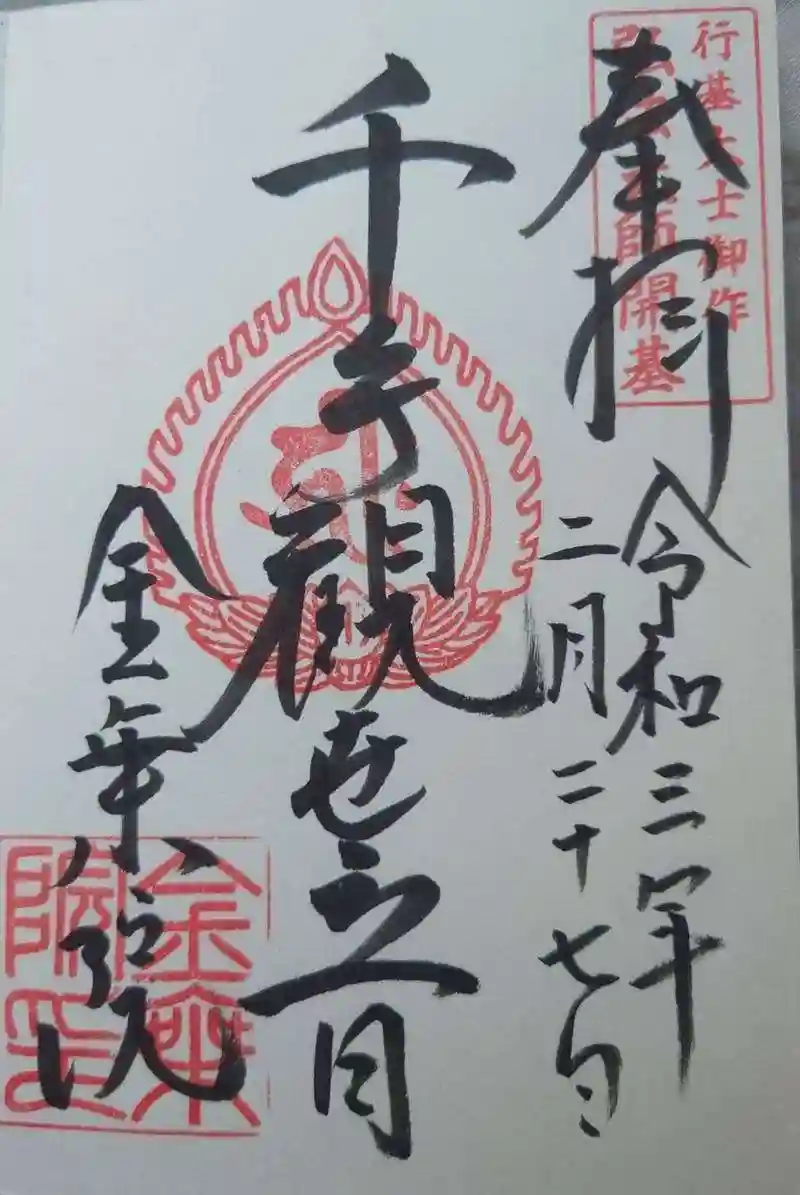 行基大士御作
弘法大師開基
奉拝
令和三年
二月二十七日
千手觀世音
金乘院
金乘
院印